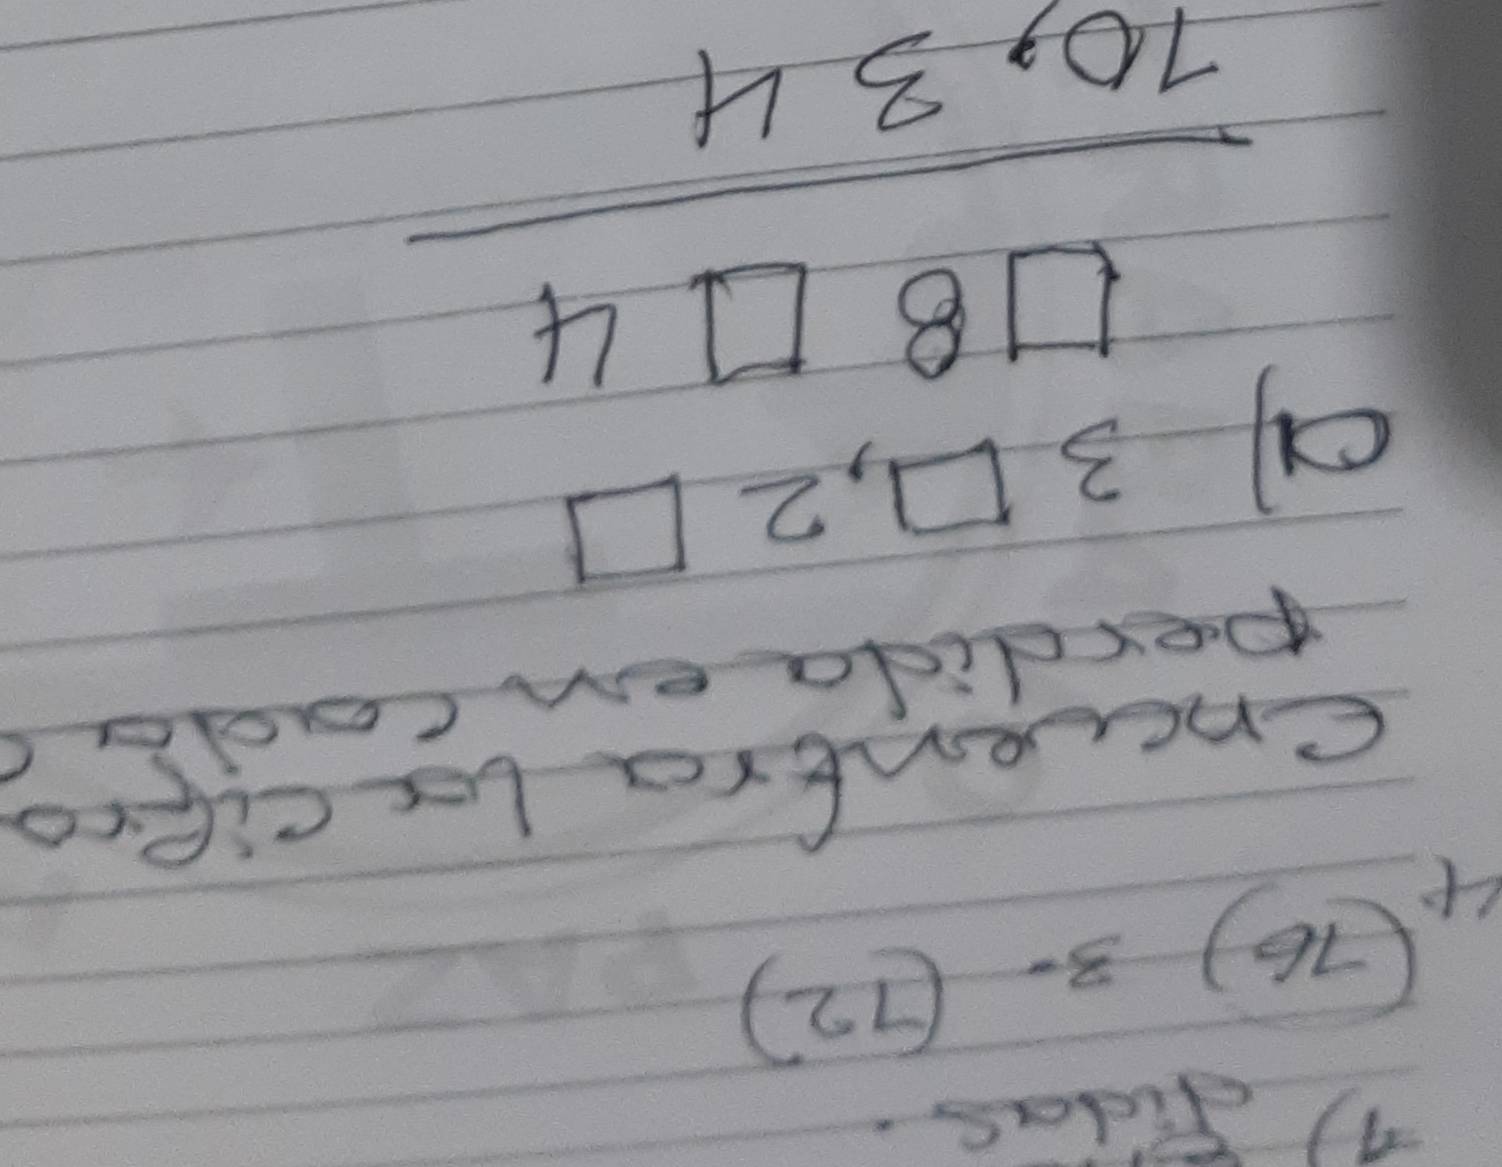 4 (16) 3- (12)
Encuentra la cifra
perdida en cada
a) 3 □,2 □
□ 8 □ 4
10, 3 4